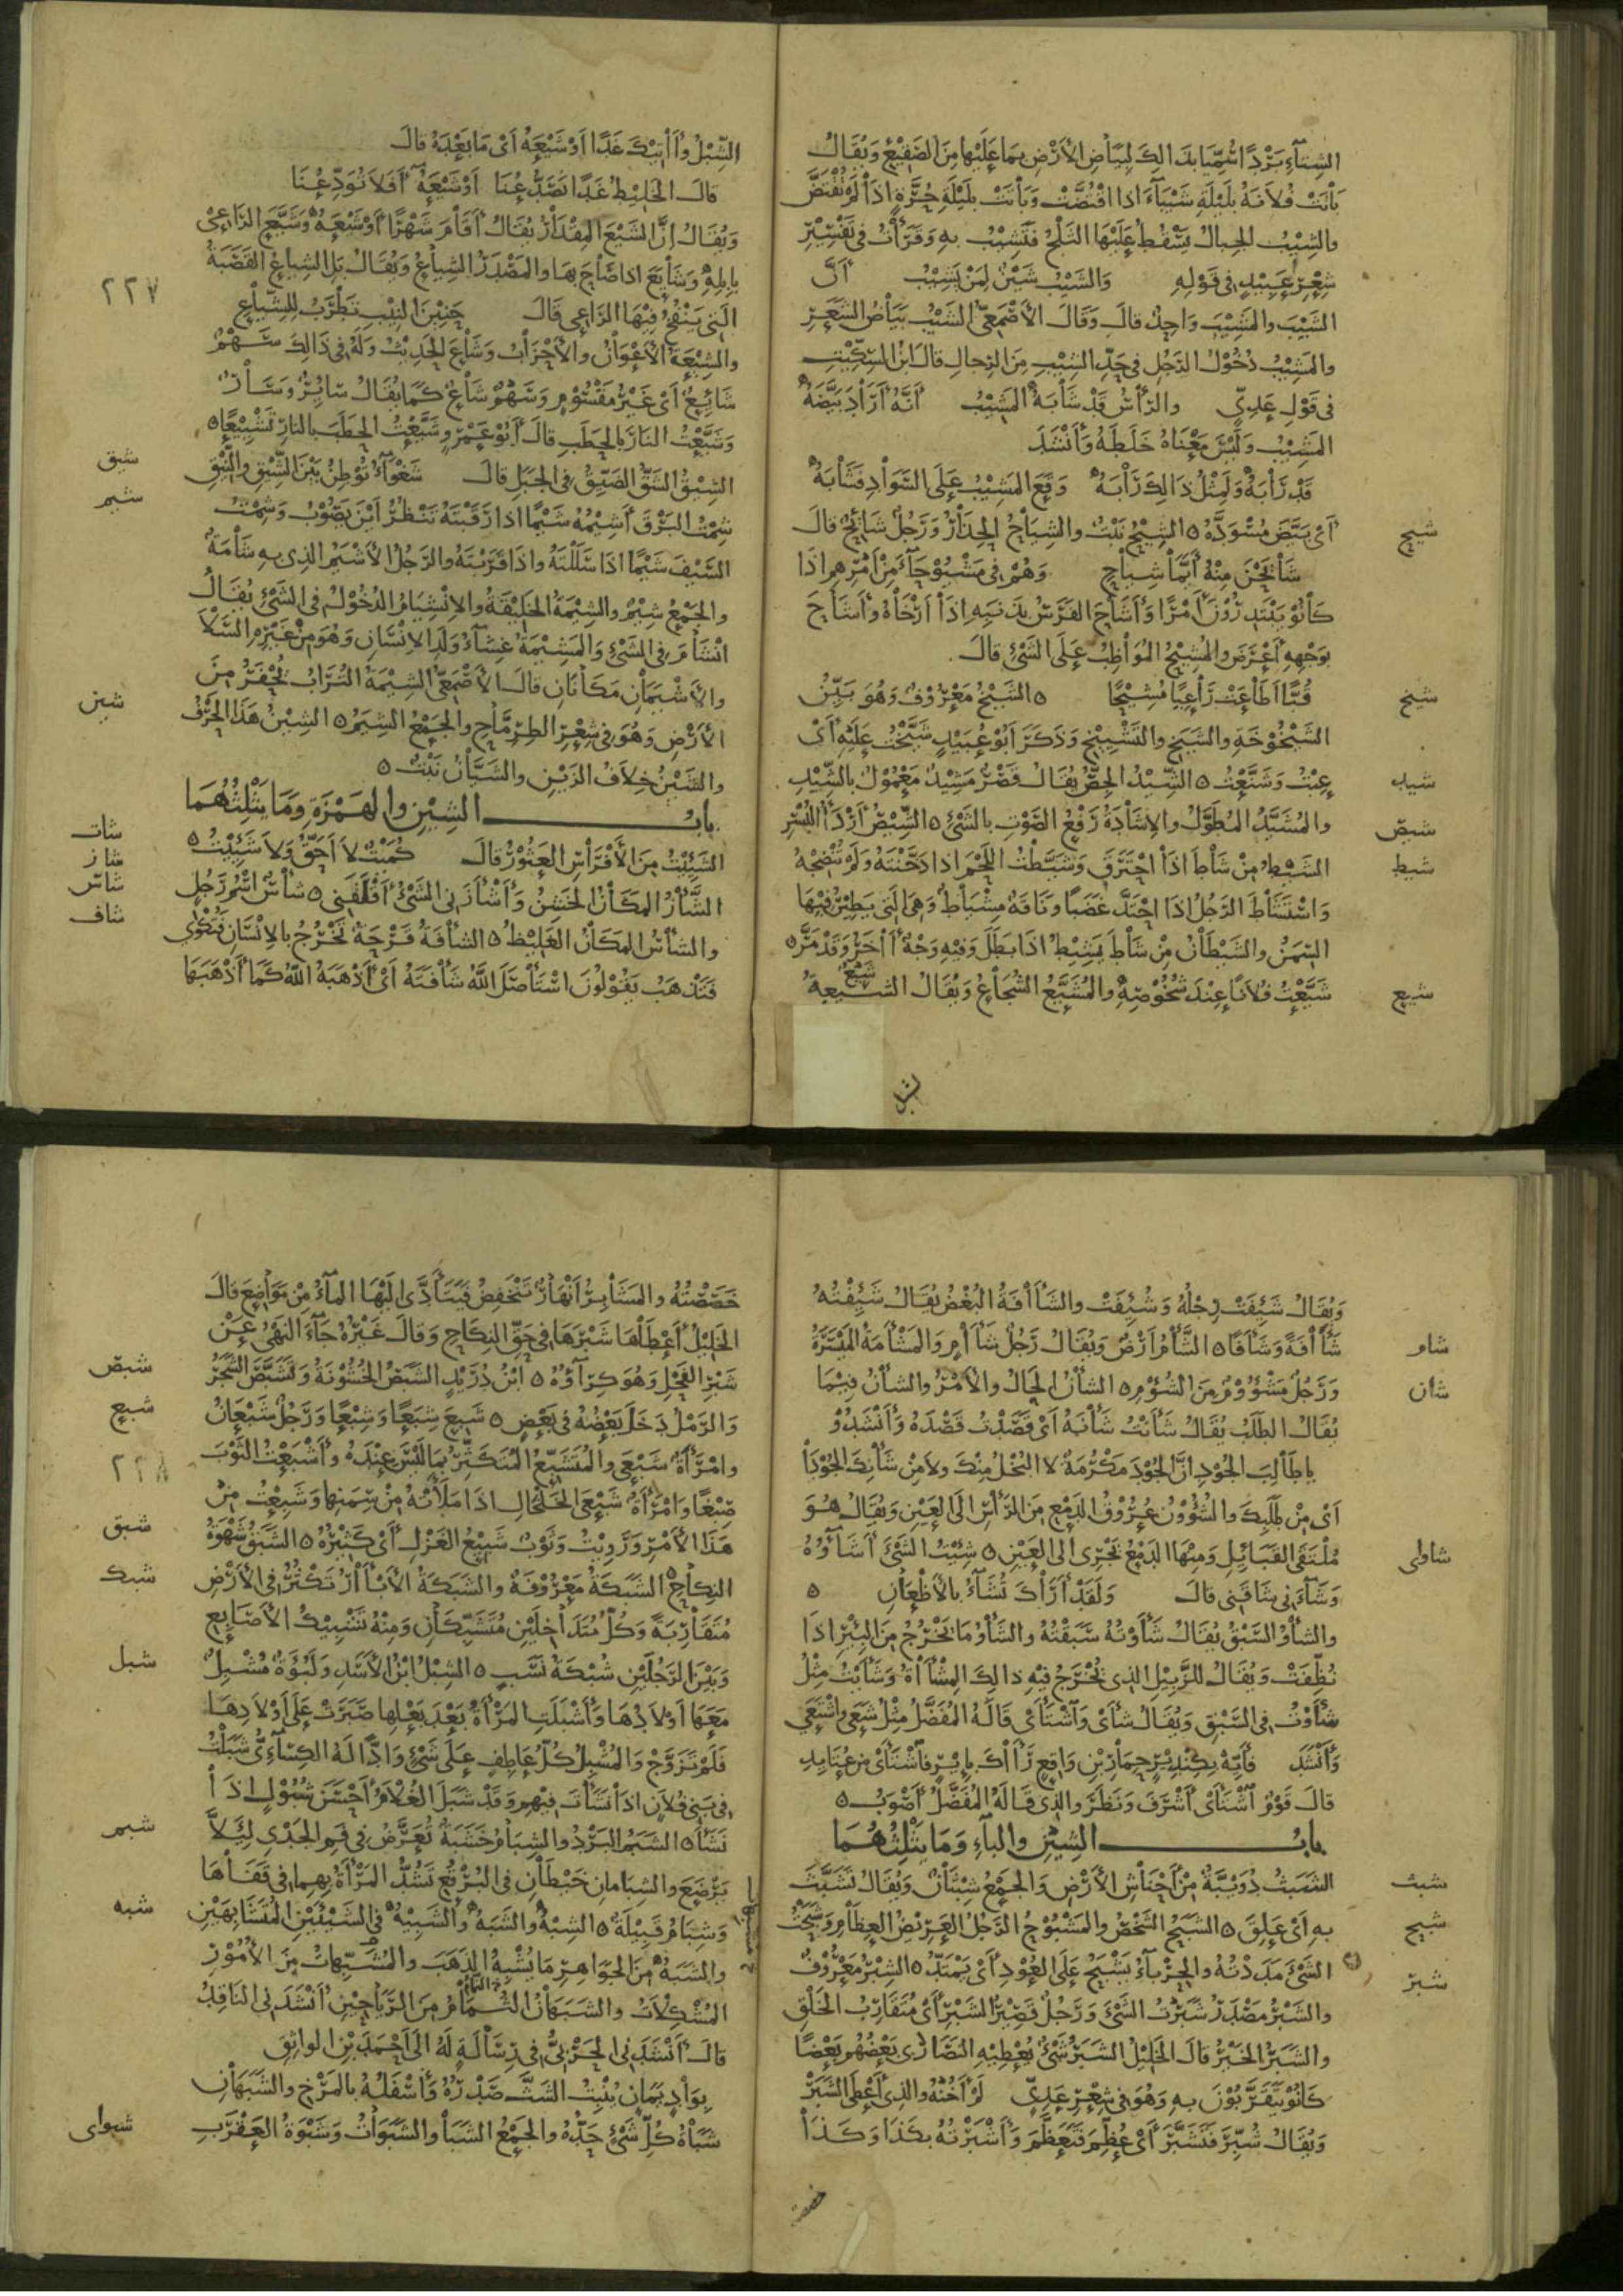 الشِّتَاءِ بَرْدًا سُمِّيَا بِذَالِكَ لِبَيَاضِ الْأَرْضِ بِمَا عَلَيْهَا مِنَ الصَّقِيْعِ وَيُقَالُ
بَاتَتْ فُلَانَةُ بِلَيْلَةِ شَيْبَاءَ اِذَا افْتُضَّتْ وَبَاتَتْ بِلَيْلَةِ حُرَّةٍ اِذَا لَمْ تُفْتَضَّ
والشِّيْبُ الجِبالُ يَسْقُطُ عَلَيْهَا الثَلْجُ فَتَشِيْبُ بِهِ وَقَرَأْتُ في تَفْسِيْرِ
شِعْرِ عَبِيْدٍ في قَوْلِهِ والشَّيْبُ شَيْنٌ لِمَنْ يَشِيْبُ اَنَّ
الشَّيْبَ والمَشِيْبَ وَاحِدٌ قالَ وَقَالَ الأَصْمَعيُّ الشَيْبُ بَيَاضُ الشَعَرِ
والمَشِيْبُ دُخُوْلُ الرَجُلِ في حَدِّ الشِيْبِ مِنَ الرِجالِ قالَ ابْنُ السِكِّيْتِ
في قَوْلِ عَدِيٍّ والرَّأْسُ قَدْ شَابَهُ المَشِيْبُ اَنَّهُ اَرَادَ بَيَّضَهُ
المَشِيْبُ وَلَيْسَ مَعْنَاهُ خَلَطَهُ وَأَنْشَدَ
قَدْ رَابَهُ وَلِمِثْلِ ذَالِكَ رَابَهُ وَقَعَ المَشِيْبُ عَلَى السَّوَادِ فَشَابَهُ
شيح اَيْ بَيَّضَ مُسْوَدَّهُ ه الشِيْحُ نَبْتٌ والشِيَاحُ الحِذَارُ وَرَجُلٌ شَائِحٌ قالَ
شَايَحْنَ مِنْهُ اَيَّمَا شِيَاحٍ وَهُمْ في مَشْيُوْحَآءَ مِنْ اَمْرِهِمْ اِذَا
كَانُوْ يَبْتَدِرُوْنَ اَمْرًا وَأَشَاحَ الفَرَسُ بِذَنَبِهِ اِذَا اَرْخَاهُ وأَشَاحَ
بِوَجْهِهِ اَعْرَضَ والمُشِيْحُ المُوَاظِبُ عَلَى الشَيْءِ قالَ
شيخ قُبًّا اَطَاعَتْ رَاعِيًا مُشِيْحًا ه الشَيْخُ مَعْرُوْفٌ وَهُوَ بَيِّنُ
الشَيْخُوْخَةِ والشَيَخِ والتَشْيِيْخِ وَذَكَرَ اَبُوْ عُبَيْدٍ شَيَّخْتُ عَلَيْهِ اَيْ
شيد عِبْتُ وَشَنَّعْتُ ه الشِّيْدُ الجِصُّ يُقَالُ قَصْرٌ مَشِيْدٌ مَعْمُوْلٌ بالشِّيْدِ
شيص والمُشَيَّدُ المُطَوَّلُ والاِشَادَةُ رَفْعُ الصَوْتِ بالشَيْءِ ه الشِّيْصُ اَرْدَأُ البُسْرِ
شيط الشَيْطُ مِنْ شَاطَ اِذَا احْتَرَقَ وَشَيَّطْتُ اللَّحْمَ اِذَا دَخَّنْتَهُ وَلَمْ تُنْضِجْهُ
وَاسْتَشَاطَ الرَجُلُ اِذَا احْتَدَّ غَضَبًا وَنَاقَةٌ مِشْيَاطٌ وَهِيَ الَتي يَطِيْرُ فيْهَا
السِمَنُ والشَيْطَانُ مِنْ شَاطَ يَشِيْطُ اِذَا بَطَلَ وَفيْهِ وَجْهٌ اٰخَرُ وَقَدْ مَرَّ ه
شيع شَيَّعْتُ فُلَانًا عِنْدَ شُخُوْصِهِ والمُشَيَّعُ الشُجَاعُ وَيُقَالُ الشِيْعَةُ شَيْعُ
شبل
الشِّبْلُ وَاٰتِيْكَ غَدًا اَوْ شَيْعَهُ اَيْ مَا بَعْدَهُ قالَ
قالَ الخَلِيْطُ غَدًا تَصَدُّعُنَا اَوْ شَيْعَهُ اَفَلَا تُوَدِّعُنَا
وَيُقَالُ اِنَّ الشَيْعَ المِقْدَارُ يُقَالُ اَقَامَ شَهْرًا اَوْ شَيْعَهُ وَشَيَّعَ الرَاعِيْ
بِاِبِلِهِ وَشَايَعَ اِذَا صَاحَ بِهَا والمَصْدَرُ الشِيَاعُ وَيُقَالُ بَلِ الشِيَاعُ القَصَبَةُ
٢٢٧ الَتي يَنْفُخُ فيْهَا الرَاعِي قَالَ حَنِيْنَ النِيْبِ تَطْرَبُ لِلشِّيَاعِ
والشِيْعَةُ الأَعْوَانُ والأَحْزَابُ وَشَاعَ الحَدِيْثُ وَلَهُ في ذَالِكَ سَهْمٌ
شَائِعٌ اَيْ غَيْرُ مَقْسُوْمٍ وَسَهْمٌ شَاعٌ كَمَا يُقَالُ سَائِرٌ وَسَارٌ
وَشَيَّعْتُ النَارَ بالحَطَبِ قالَ اَبُوْ عَمْرٍو شَيَّعْتُ الحَطَبَ بالنَارِ تَشْيِيْعًا ه
شيق الشِيْقُ الشَقُّ الضَيِّقُ في الجَبَلِ قالَ شَغْوَآءُ تُوْطِنُ بَيْنَ الشِّيْقِ والنِّيْقِ
شيم شِمْتُ البَرْقَ اَشِيْمُهُ شَيْمًا اِذَا رَقَبْتَهُ تَنْظُرُ اَيْنَ يَصُوْبُ وَشِمْتُ
السَّيْفَ شَيْمًا اِذَا سَلَلْتَهُ وَاِذَا قَرَبْتَهُ والرَجُلُ الأَشْيَمُ الذِي بِهِ شَامَةٌ
والجَمْعُ شِيْمٌ والشِيْمَةُ الخَلِيْقَةُ والاِنْشِيَامُ الدُخُوْلُ في الشَيْءِ يُقَالُ
انْشَامَ في الشَيْءِ وَالمَشِيْمَةُ غِشَآءُ وَلَدِ الاِنْسَانِ وَهُوَ مِنْ غَيْرِهِ السَّلَا
والأَشْيَمَانِ مَكَانَانِ قالَ الأَصْمَعيُّ الشِيْمَةُ التُرَابُ يُحْفَرُ مِنَ
شين الأَرْضِ وَهُوَ في شِعْرِ الطِرِمَّاحِ والجَمْعُ الشِيَمُ ه الشِيْنُ هَذَا الحَرْفُ
والشَيْنُ خِلَافُ الزَيْنِ والشَيَّانُ نَبْتٌ ه
بابُ الشِيْنِ والهَمْزَةِ وَمَا يَثْلِثُهُمَا
شات الشَئِيْتُ مِنَ الأَفْرَاسِ العَثُوْرُ قالَ كُمَيْتٌ لَا اَحَقُّ وَلَا شَئِيْتُ ه
شاز الشَّأْزُ المَكَانُ الخَشِنُ وَأَشْأَزَني الشَيْءُ اَقْلَقَني ه شَأْسٌ اسْمُ رَجُلٍ
شاس
شاف والشَأْسُ المَكَانُ الغَلِيْظُ ه الشَأْفَةُ قَرْحَةٌ تَخْرُجُ بالاِنْسَانِ فَتُكْوَي
فَتَذْهَبُ يَقُوْلُوْنَ اسْتَأْصَلَ اللّٰهُ شَأْفَتَهُ اَيْ اَذْهَبَهُ اللّٰهُ كَمَا اَذْهَبَهَا
وَيُقَالُ شَئِفَتْ رِجْلُهُ وَشُئِفَتْ والشَآفَةُ البُغْضُ يُقَالُ شَئِفْتُهُ
شام شَآفَةً وَشَأْفًا ه الشَّأْمُ اَرْضٌ وَيُقَالُ رَجُلٌ شَآمٍ وَالمَشْأَمَةُ المَيْسَرَةُ
شان وَرَجُلٌ مَشْؤُوْمٌ مِنَ الشُؤْمِ ه الشَأْنُ الحَالُ والأَمْرُ والشَأْنُ فيْمَا
يُقَالُ الطَلَبُ يُقَالُ شَأَنْتُ شَأْنَهُ اَيْ قَصَدْتُ قَصْدَهُ وَأَنْشَدُوْ
يا طَالِبَ الجُوْدِ اِنَّ الجُوْدَ مَكْرُمَةٌ لا البُخْلُ مِنْكَ ولا مِنْ شَأْنِكَ الجُوْدَا
اَيْ مِنْ طَلَبِكَ والشُؤُوْنُ عُرُوْقُ الدَمْعِ مِنَ الرَأْسِ الَى العَيْنِ وَيُقَالُ هُوَ
شاوى مُلْتَقَى القَبَائِلِ وَمِنْهَا الدَمْعُ يَجْرِي الى العَيْنِ ه شِئْتُ الشَيْءَ اَشَآؤُهُ
وَشَآءَني شَاقَني قالَ وَلَقَدْ اَرَاكَ تُشَآءُ بالأَظْعَانِ ه
والشَأْوُ السَبْقُ يُقَالُ شَأَوْتُهُ سَبَقْتُهُ والشَأْوُ مَا يَخْرُجُ مِنَ البِئْرِ اِذَا
نُظِّفَتْ وَيُقَالُ لِلزَّبِيْلِ الذي يُخْرَجُ فيْهِ ذالِكَ المِشْآةُ وَشَأَيْتُ مِثْلُ
شَأَوْتُ في السَبْقِ وَيُقَالُ شَأَى وَاشْتَأَى قَالَهُ المُفَضَّلُ مِثْلُ شَعَى وَاشْتَعَى
قالَ قَوْمٌ اشْتَأَى اَشْرَفَ وَنَظَرَ والذي قَالَهُ المُفَضَّلُ اَصْوَبُ ه
بابُ الشِيْنِ والبَآءِ وَمَا يَثْلِثُهُمَا
شبث الشَبَثُ دُوَيْبَّةٌ مِنْ اَحْنَاشِ الأَرْضِ وَالجَمْعُ شِبْثَانٌ وَيُقَالُ تَشَبَّثَ
شبح بِهِ اَيْ عَلِقَ ه الشَبَحُ الشَخْصُ والمَشْبُوْحُ الرَجُلُ العَرِيْضُ العِظَامِ وَشَبَحْتُ
شبر الشَيْءَ مَدَدْتُهُ والحِرْبَآءُ يَشْبَحُ عَلَى العُوْدِ اَيْ يَمْتَدُّ ه الشِبْرُ مَعْرُوْفٌ
والشَبْرُ مَصْدَرُ شَبَرْتُ الشَيْءَ وَرَجُلٌ قَصِيْرُ الشَبْرِ اَيْ مُتَقَارِبُ الخَلْقِ
والشَبَرُ الخَيْرُ قالَ الخَلِيْلُ الشَبَرُ شَيْءٌ يُعْطِيْهِ النَصَارَى بَعْضُهُمْ بَعْضًا
كَانُوْ يَتَقَرَّبُوْنَ بِهِ وَهُوَ في شِعْرِ عَدِيٍّ لَمْ اَخُنْهُ والذي اَعْطَى الشَبَرْ
وَيُقَالُ شُبِّرَ فَتَشَبَّرَ اَيْ عُظِّمَ فَتَعَظَّمَ وَأَشْبَرْتُهُ بِكَذَا وَكَذَا
خصصته
خَصَصْتُهُ والمَشَابِرُ اَنْهَارٌ تَنْخَفِضُ فَيَتَأَدَّى اِلَيْهَا المَآءُ مِنْ مَوَاضِعَ قالَ
الخَلِيْلُ اَعْطَاهَا شَبْرَهَا في حَقِّ النِكَاحِ وَقالَ غَيْرُهُ جَآءَ النَهْيُ عَنْ
شبص شَبْرِ الفَحْلِ وَهُوَ كِرَآؤُهُ ه ابْنُ دُرَيْدٍ الشَبَصُ الخُشُوْنَةُ وَتَشَبَّصَ الشَّجَرُ
شبع وَالرَمْلُ دَخَلَ بَعْضُهُ في بَعْضٍ ه شَبِعَ شِبَعًا وَشِبْعًا وَرَجُلٌ شَبْعَانُ
٢٢٨ وامْرَأَةٌ شَبْعَى والمُتَشَبِّعُ المُتَكَثِّرُ بِمَا لَيْسَ عِنْدَهُ وأَشْبَعْتُ الثَوْبَ
صِبْغًا وَامْرَأَةٌ شَبْعَى الخَلْخَالِ اِذَا مَلَأَتْهُ مِنْ سِمَنِهَا وَشَبِعْتُ مِنْ
شبق هَذَا الأَمْرِ وَرَوِيْتُ وَثَوْبٌ شَبِيْعُ الغَزْلِ اَيْ كَثِيْرُهُ ه الشَبَقُ شَهْوَةُ
شبك النِكَاحِ ه الشَبَكَةُ مَعْرُوْفَةٌ والشَبَكَةُ الآبَارُ تَكْثُرُ في الأَرْضِ
مُتَقَارِبَةً وَكُلُّ مُتَدَاخِلَيْنِ مُتَشَبِّكَانِ وَمِنْهُ تَشْبِيْكُ الأَصَابِعِ
شبل وَبَيْنَ الرَجُلَيْنِ شُبْكَةُ نَسَبٍ ه الشِبْلُ ابْنُ الأَسَدِ وَلَبُؤَةٌ مُشْبِلٌ
مَعَهَا اَوْلَادُهَا وَأَشْبَلَتِ المَرْأَةُ بَعْدَ بَعْلِهَا صَبَرَتْ عَلَى اَوْلَادِهَا
فَلَمْ تَزَوَّجْ وَالمُشْبِلُ كُلُّ عَاطِفٍ عَلَى شَيْءٍ وَادٍّ لَهُ الكِسَآءِيُّ شَبَلْتُ
في بَني فُلَانٍ اِذَا نَشَأْتَ فيْهِمْ وَقَدْ شَبَلَ الغُلَامُ اَحْسَنَ شُبُوْلٍ اِذَا
شبم نَشَأَ ه الشَبَمُ البَرْدُ والشِبَامُ خَشَبَةٌ تُعَرَّضُ في فَمِ الجَدْيِ لِئَلَّا
يَرْضَعَ والشِبَامانِ خَيْطَانِ في البُرْقُعِ تَشُدُّ المَرْأَةُ بِهِمَا في قَفَاهَا
شبه وَشِبَامُ قَبِيْلَةٌ ه الشِبْهُ والشَبَهُ والشَبِيْهُ في الشَيْئَيْنِ المُتَشَابِهَيْنِ
والشَبَهُ مِنَ الجَوَاهِرِ مَا يُشْبِهُ الذَهَبَ والمُشَبِّهَاتُ مِنَ الأُمُوْرِ
المُشْكِلَاتُ والشَبَهَانُ الثُمَامُ مِنَ الرَيَاحِيْنِ اَنْشَدَني النَاقِدُ
قالَ اَنْشَدَني الحَرْبيُّ في رِسَالَةٍ لَهُ الَى اَحْمَدَ بْنِ الواثِقِ
بِوَادٍ يَمَانٍ يُنْبِتُ الشَثَّ صَدْرُهُ وَأَسْفَلُهُ بالمَرْخِ والشَبَهَانِ
شبواى شَبَاةُ كُلِّ شَيْءٍ حَدُّهُ والجَمْعُ الشَبَا والشَبَوَاتُ وَشَبْوَةُ العَقْرَبُ